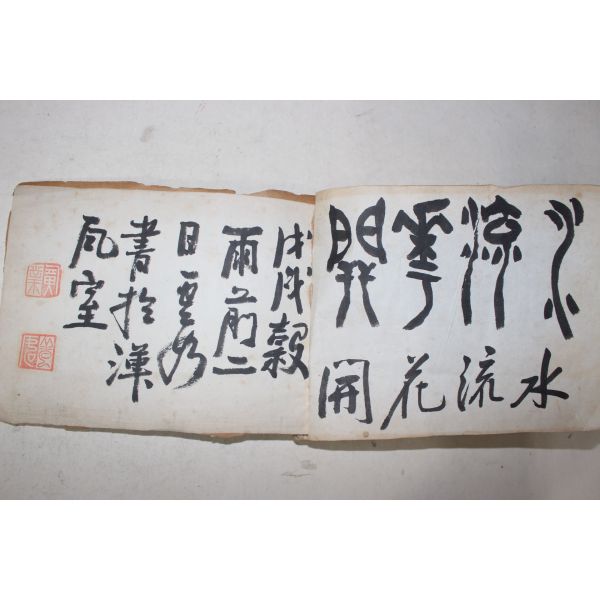 水流華開
水流花開
戊戌穀
雨前二
日
書於渾
瓦室